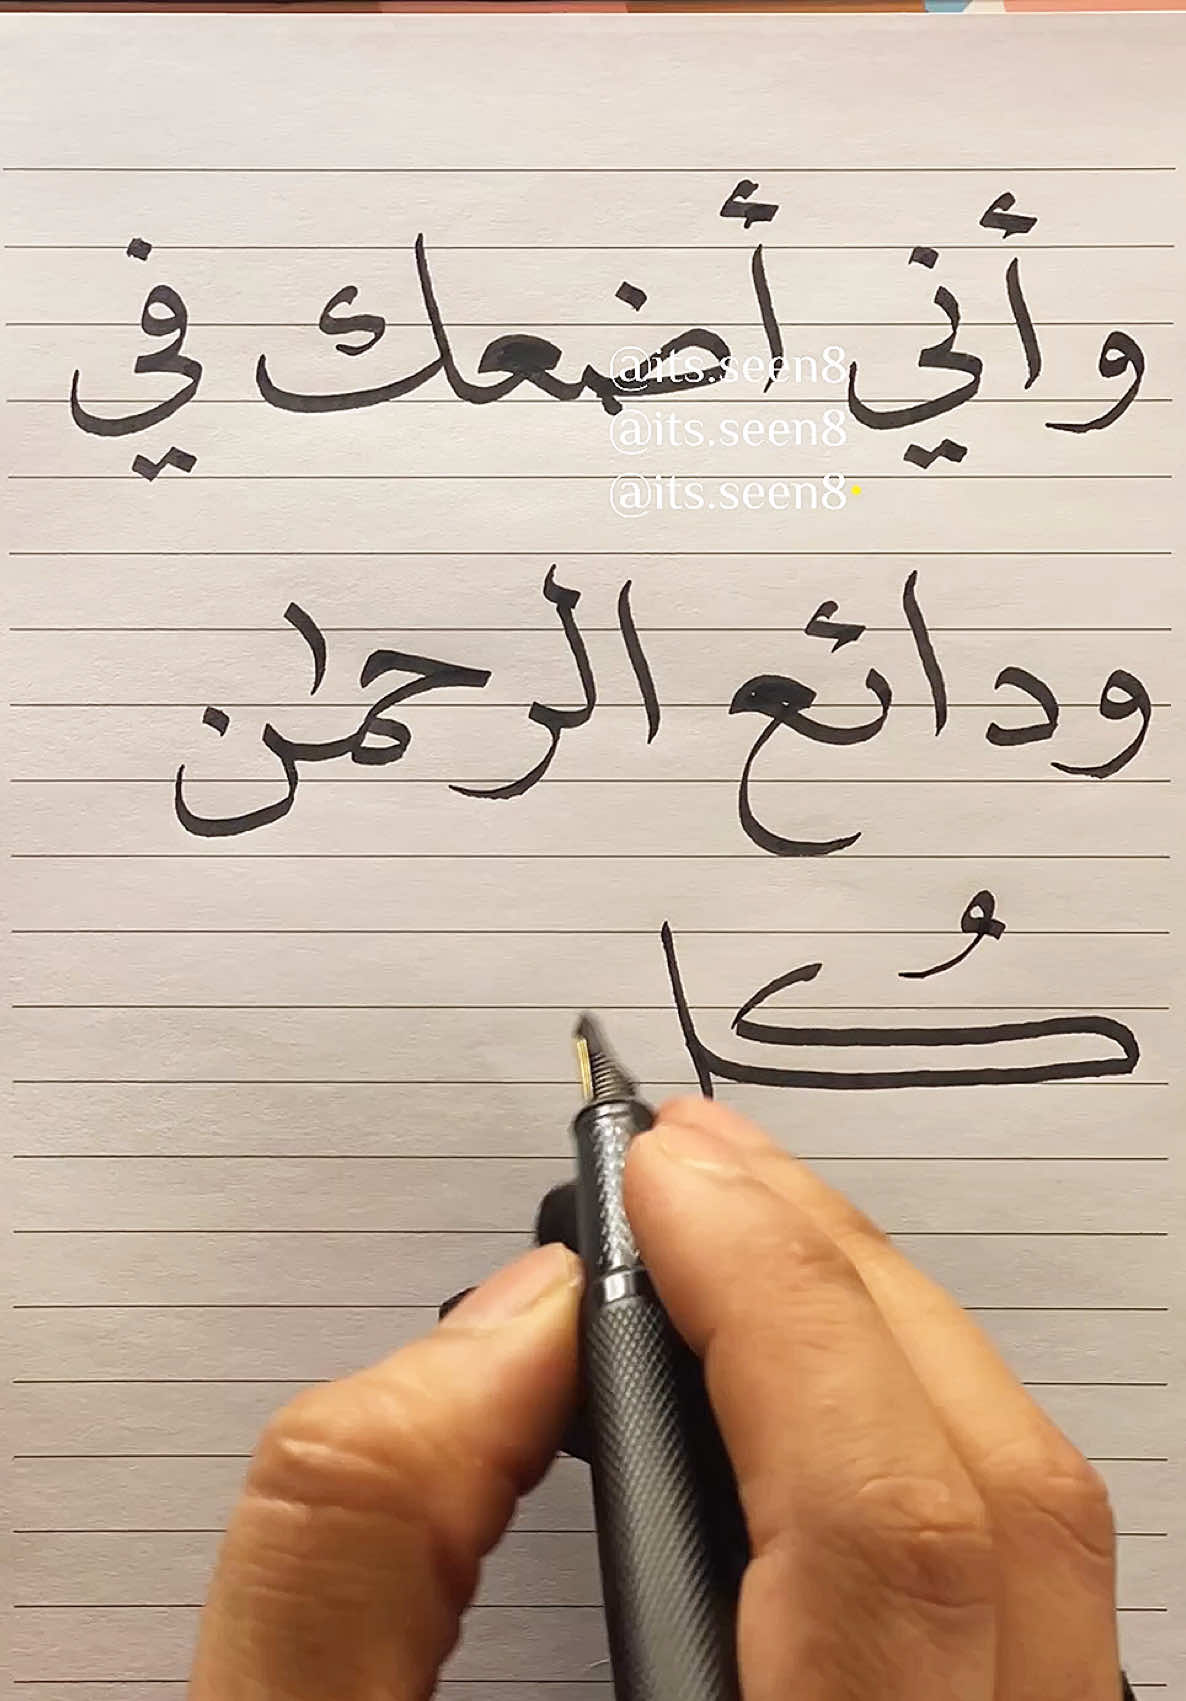 وأني أضعك في
@its.seen8
@its.seen8
@its.seen8
ودائع الرحمٰن